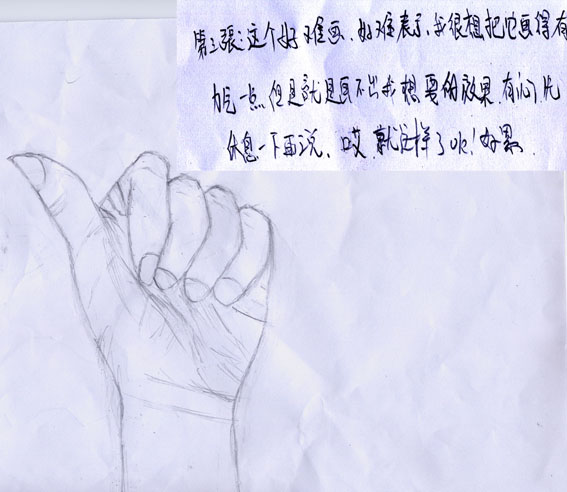 第三張:这个好难画、好难表了、我很想把它画得有
力气一点但是就是画不出我想要的效果.有
休息一下再说、哎.就这样了吧!好累.